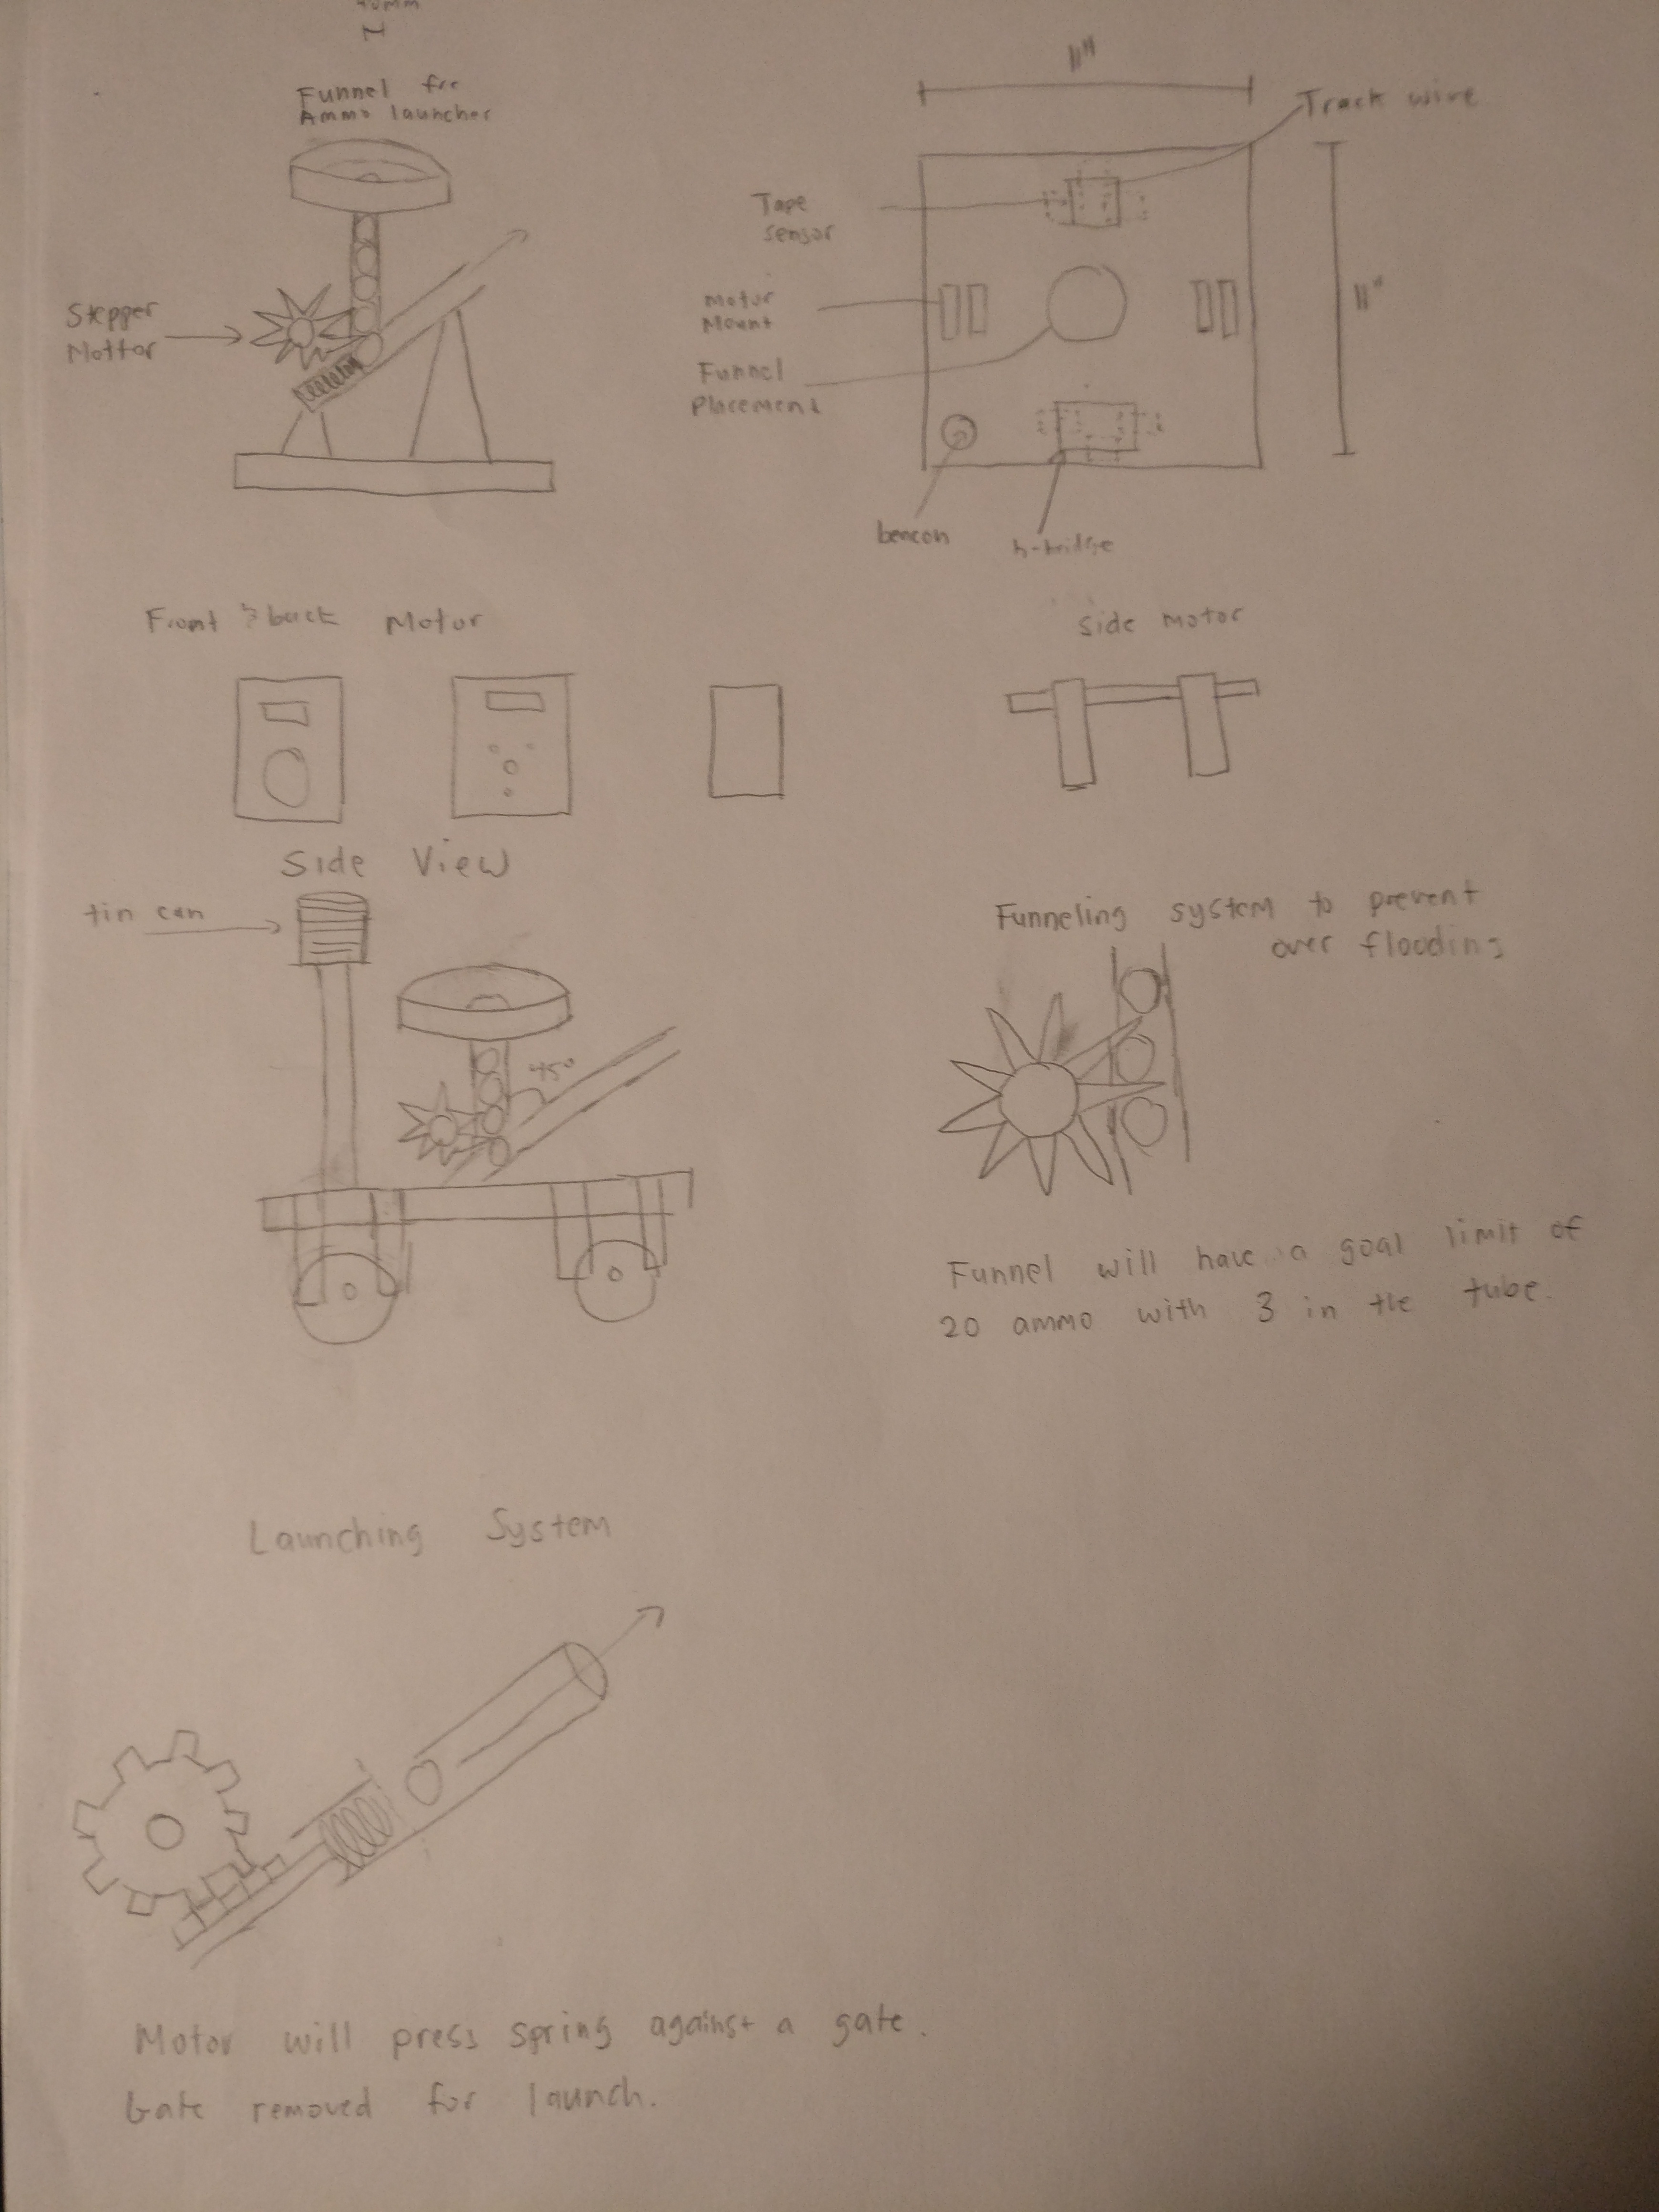 40mm
Funnel for
Ammo launcher
Stepper
Mottor
11"
Track wire
Tape
sensor
Motor
Mount
11"
Funnel
Placement
beacon
h-bridge
Front & back Motor
side motor
Side View
tin can
45°
Funneling system to prevent
over flooding
Funnel will have a goal limit of
20 ammo with 3 in the tube.
Launching System
Motor will press spring against a gate.
Gate removed for launch.